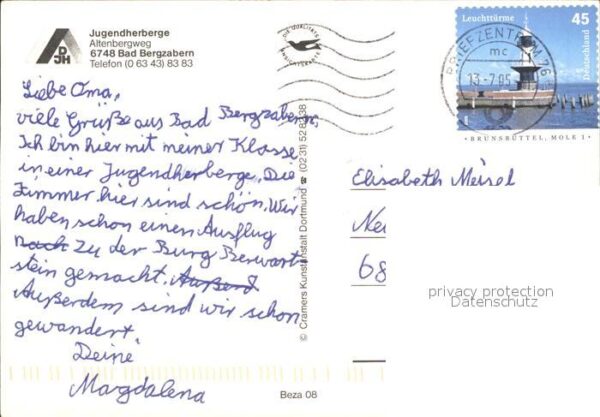 Jugendherberge
Altenbergweg
6748 Bad Bergzabern
Telefon (0 63 43) 83 83
DJH
Liebe Oma,
viele Grüße aus Bad Bergzabern.
Ich bin hier mit meiner Klasse
in einer Jugendherberge. Die
Zimmer hier sind schön. Wir
haben schon einen Ausflug
nach zu der Burg Berwart-
stein gemacht. Außerd
Außerdem sind wir schon
gewandert.
Deine
Margdalena
© Cramers Kunstanstalt Dortmund (02 31) 52 83 38
Beza 08
Leuchttürme 45
Deutschland
BRUNSBÜTTEL, MOLE 1
BRIEFZENTRUM 76
mc
13.-7.05
Elisabeth Meisel
Neu
68
privacy protection
Datenschutz